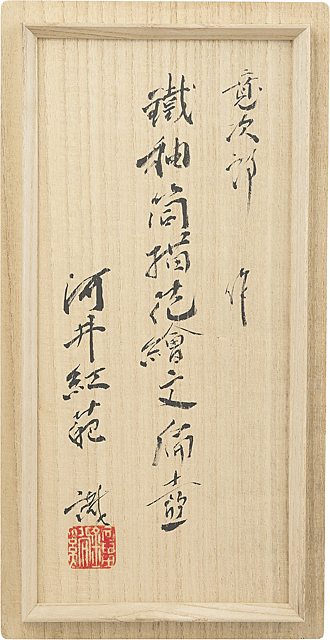 寛次郎 作
鐵釉筒描花繪文偏壺
河井紅葩 識